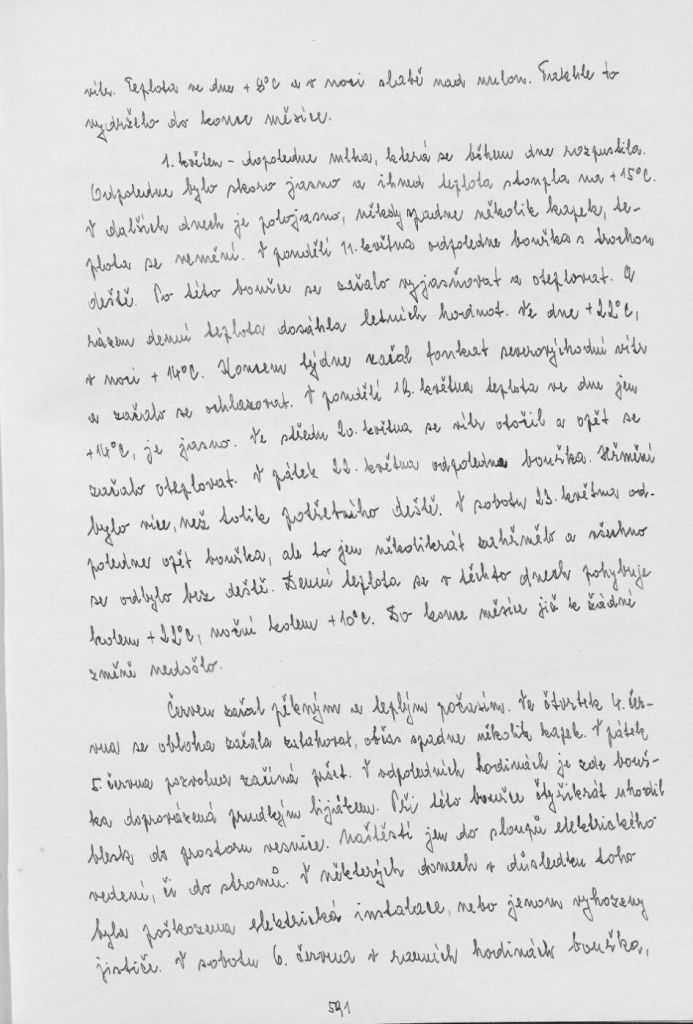 vítr. Teplota ve dne +8°C a v noci slabě nad nulou. Takhle to
vydrželo do konce měsíce.
1. květen - dopoledne mlha, která se během dne rozpustila.
Odpoledne bylo skoro jasno a ihned teplota stoupla na +15°C.
V dalších dnech je polojasno, někdy spadne několik kapek, te-
plota se nemění. V pondělí 11. května odpoledne bouřka s trochou
deště. Po této bouřce se začalo vyjasňovat a oteplovat. A
rázem denní teplota dosáhla letních hodnot. Ve dne +22°C,
v noci +14°C. Koncem týdne začal foukat severovýchodní vítr
a začalo se ochlazovat. V pondělí 18. května teplota ve dne jen
+14°C, je jasno. Ve středu 20. května se vítr otočil a opět se
začalo oteplovat. V pátek 22. května odpoledne bouřka. Hřmění
bylo více, než tolik potřetního deště. V sobotu 23. května od-
poledne opět bouřka, ale to jen několikrát zahřmělo a všechno
se odbylo bez deště. Denní teplota se v těchto dnech pohybuje
kolem +22°C, noční kolem +10°C. Do konce měsíce již k žádné
změně nedošlo.
Červen začal pěkným a teplým počasím. Ve čtvrtek 4. čer-
vna se obloha začala zatahovat, občas spadne několik kapek. V pátek
5. června pozvolna začíná pršet. V odpoledních hodinách je zde bouř-
ka doprovázená prudkým lijákem. Při této bouřce čtyřikrát uhodil
blesk do prostoru vesnice. Naštěstí jen do sloupů elektrického
vedení, či do stromů. V některých domech v důsledku toho
byla poškozena elektrická instalace, nebo jenom vyhozeny
jističe. V sobotu 6. června v ranních hodinách bouřka,
591